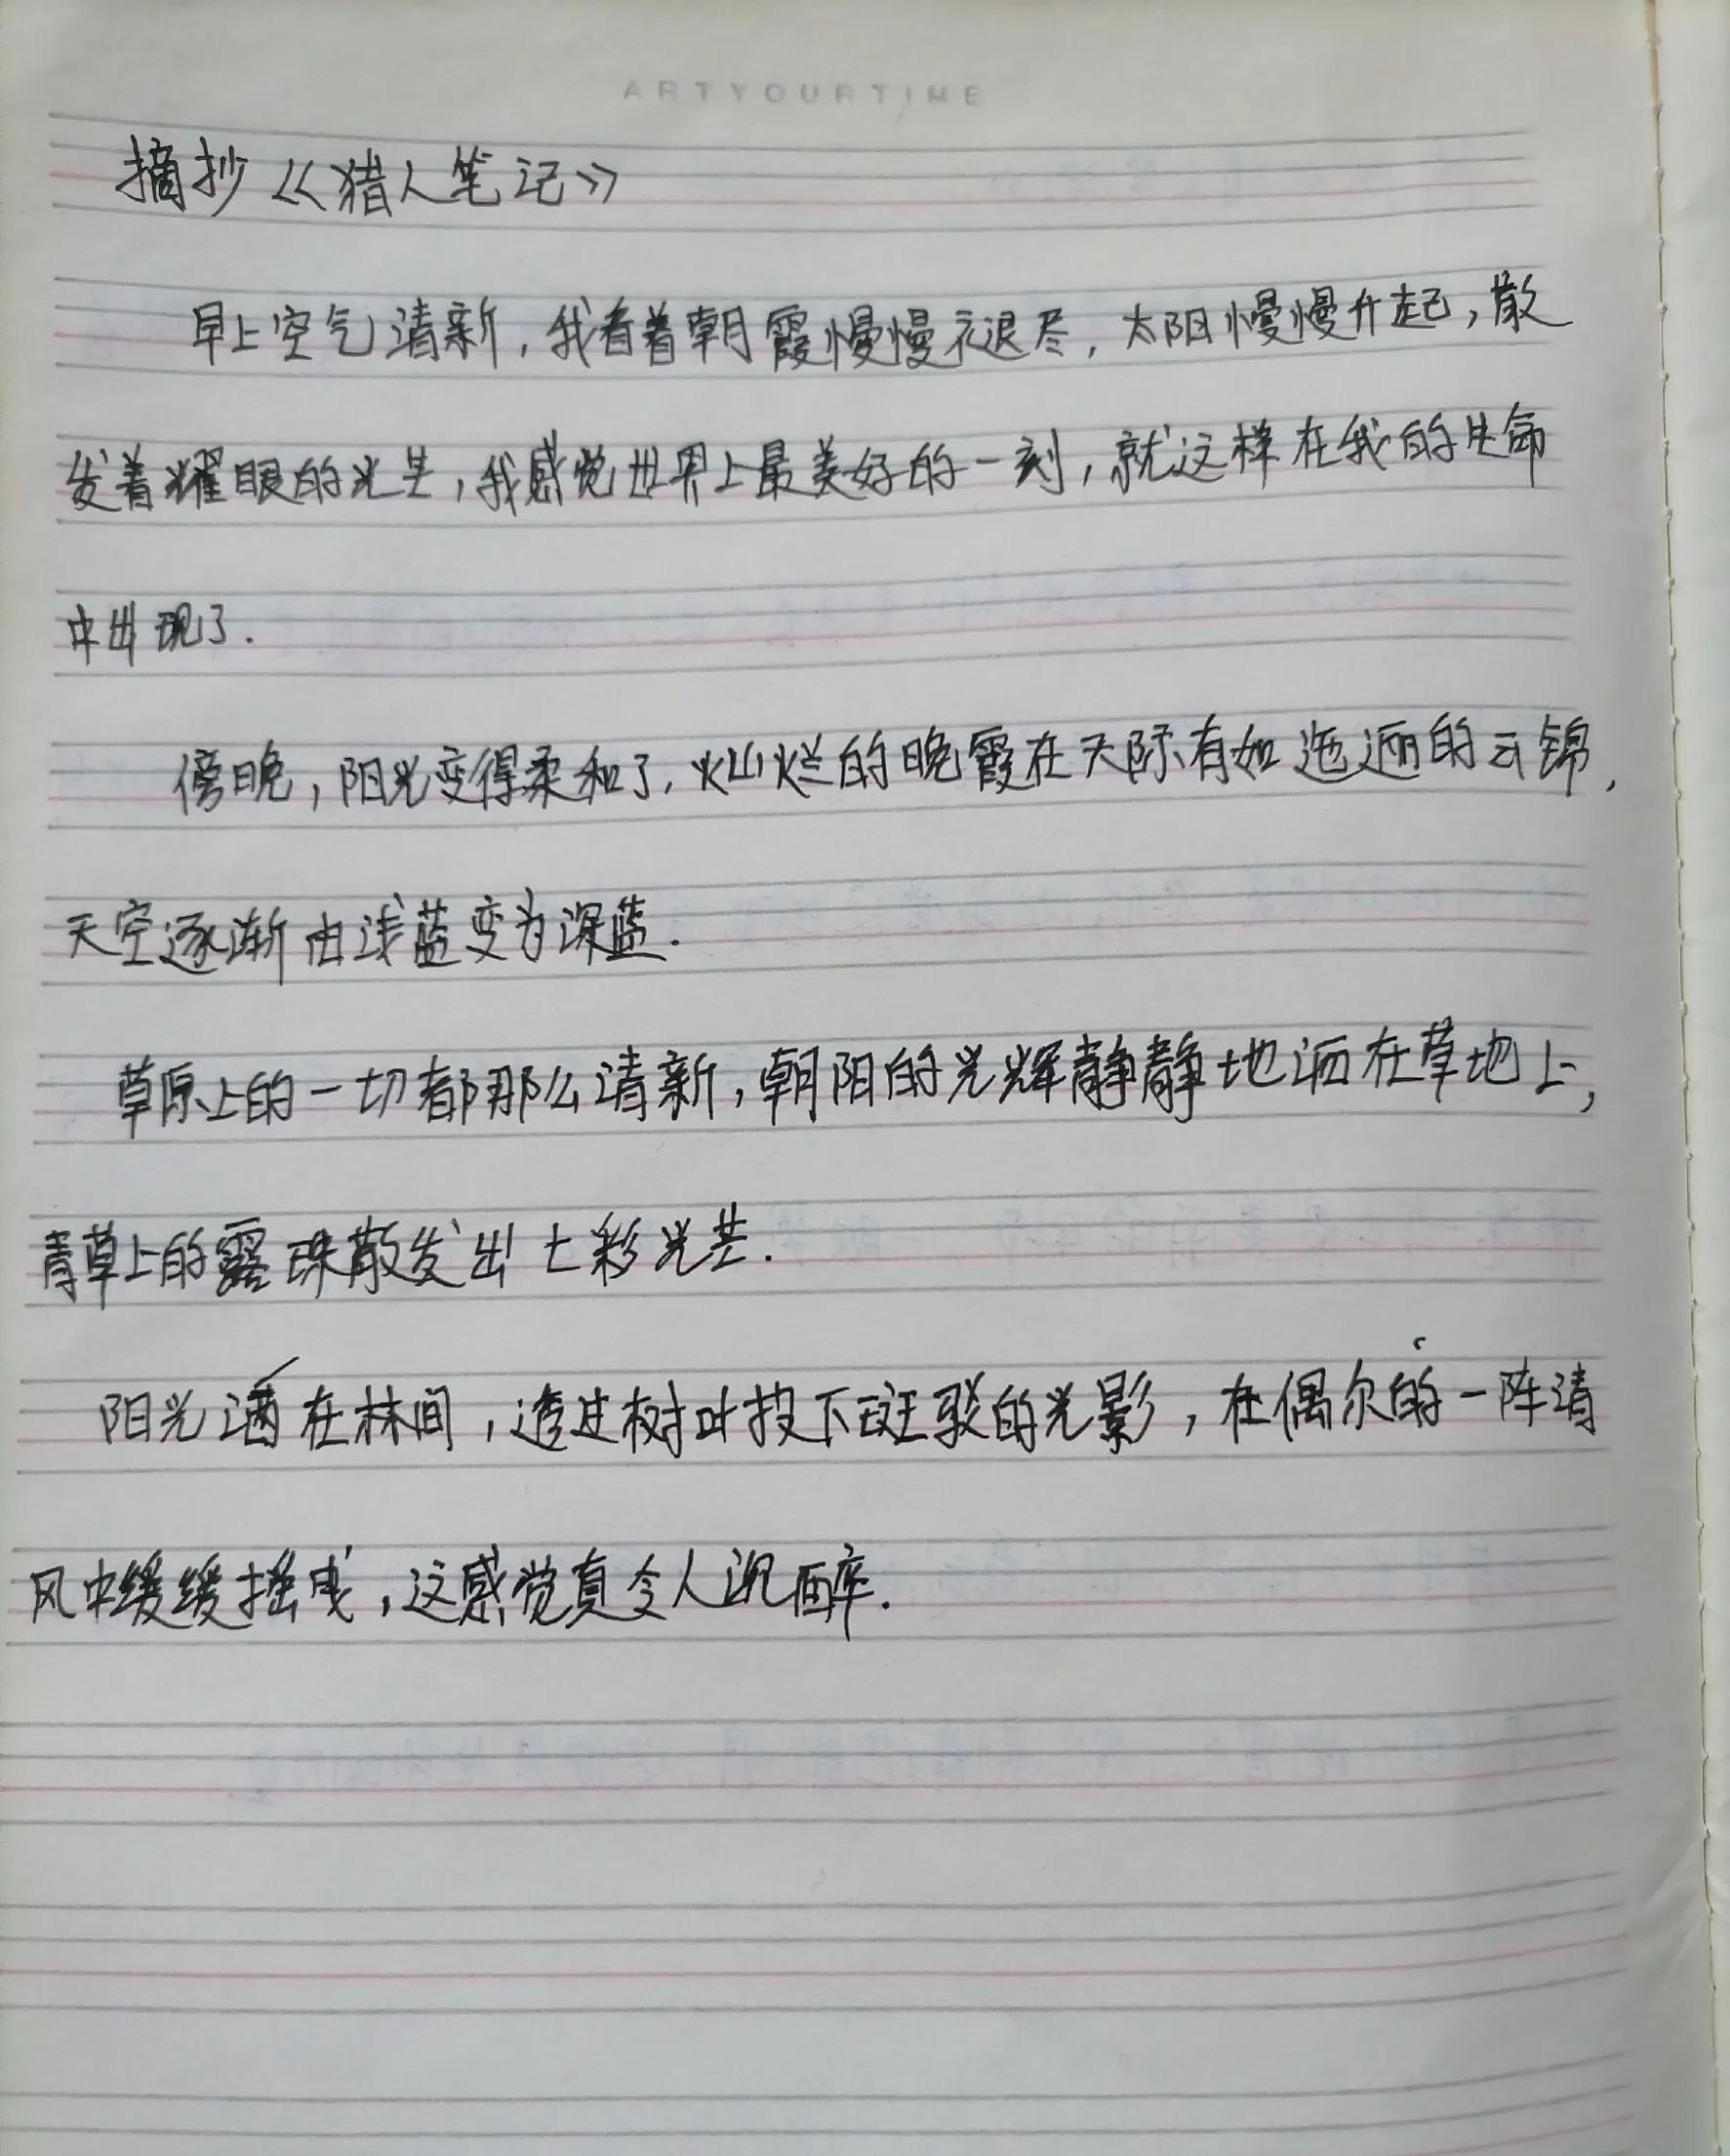 ARTYOURTIME
摘抄《猎人笔记》
早上空气清新,我看着朝霞慢慢退尽,太阳慢慢升起,散
发着耀眼的光芒,我感觉世界上最美好的一刻,就这样在我的生命
中出现了.
傍晚,阳光变得柔和了,灿烂的晚霞在天际有如迤逦的云锦,
天空逐渐由浅蓝变为深蓝.
草原上的一切都那么清新,朝阳的光辉静静地洒在草地上,
青草上的露珠散发出七彩光芒.
阳光洒在林间,透过树叶投下斑驳的光影,在偶尔的一阵清
风中缓缓摇曳,这感觉真令人沉醉.